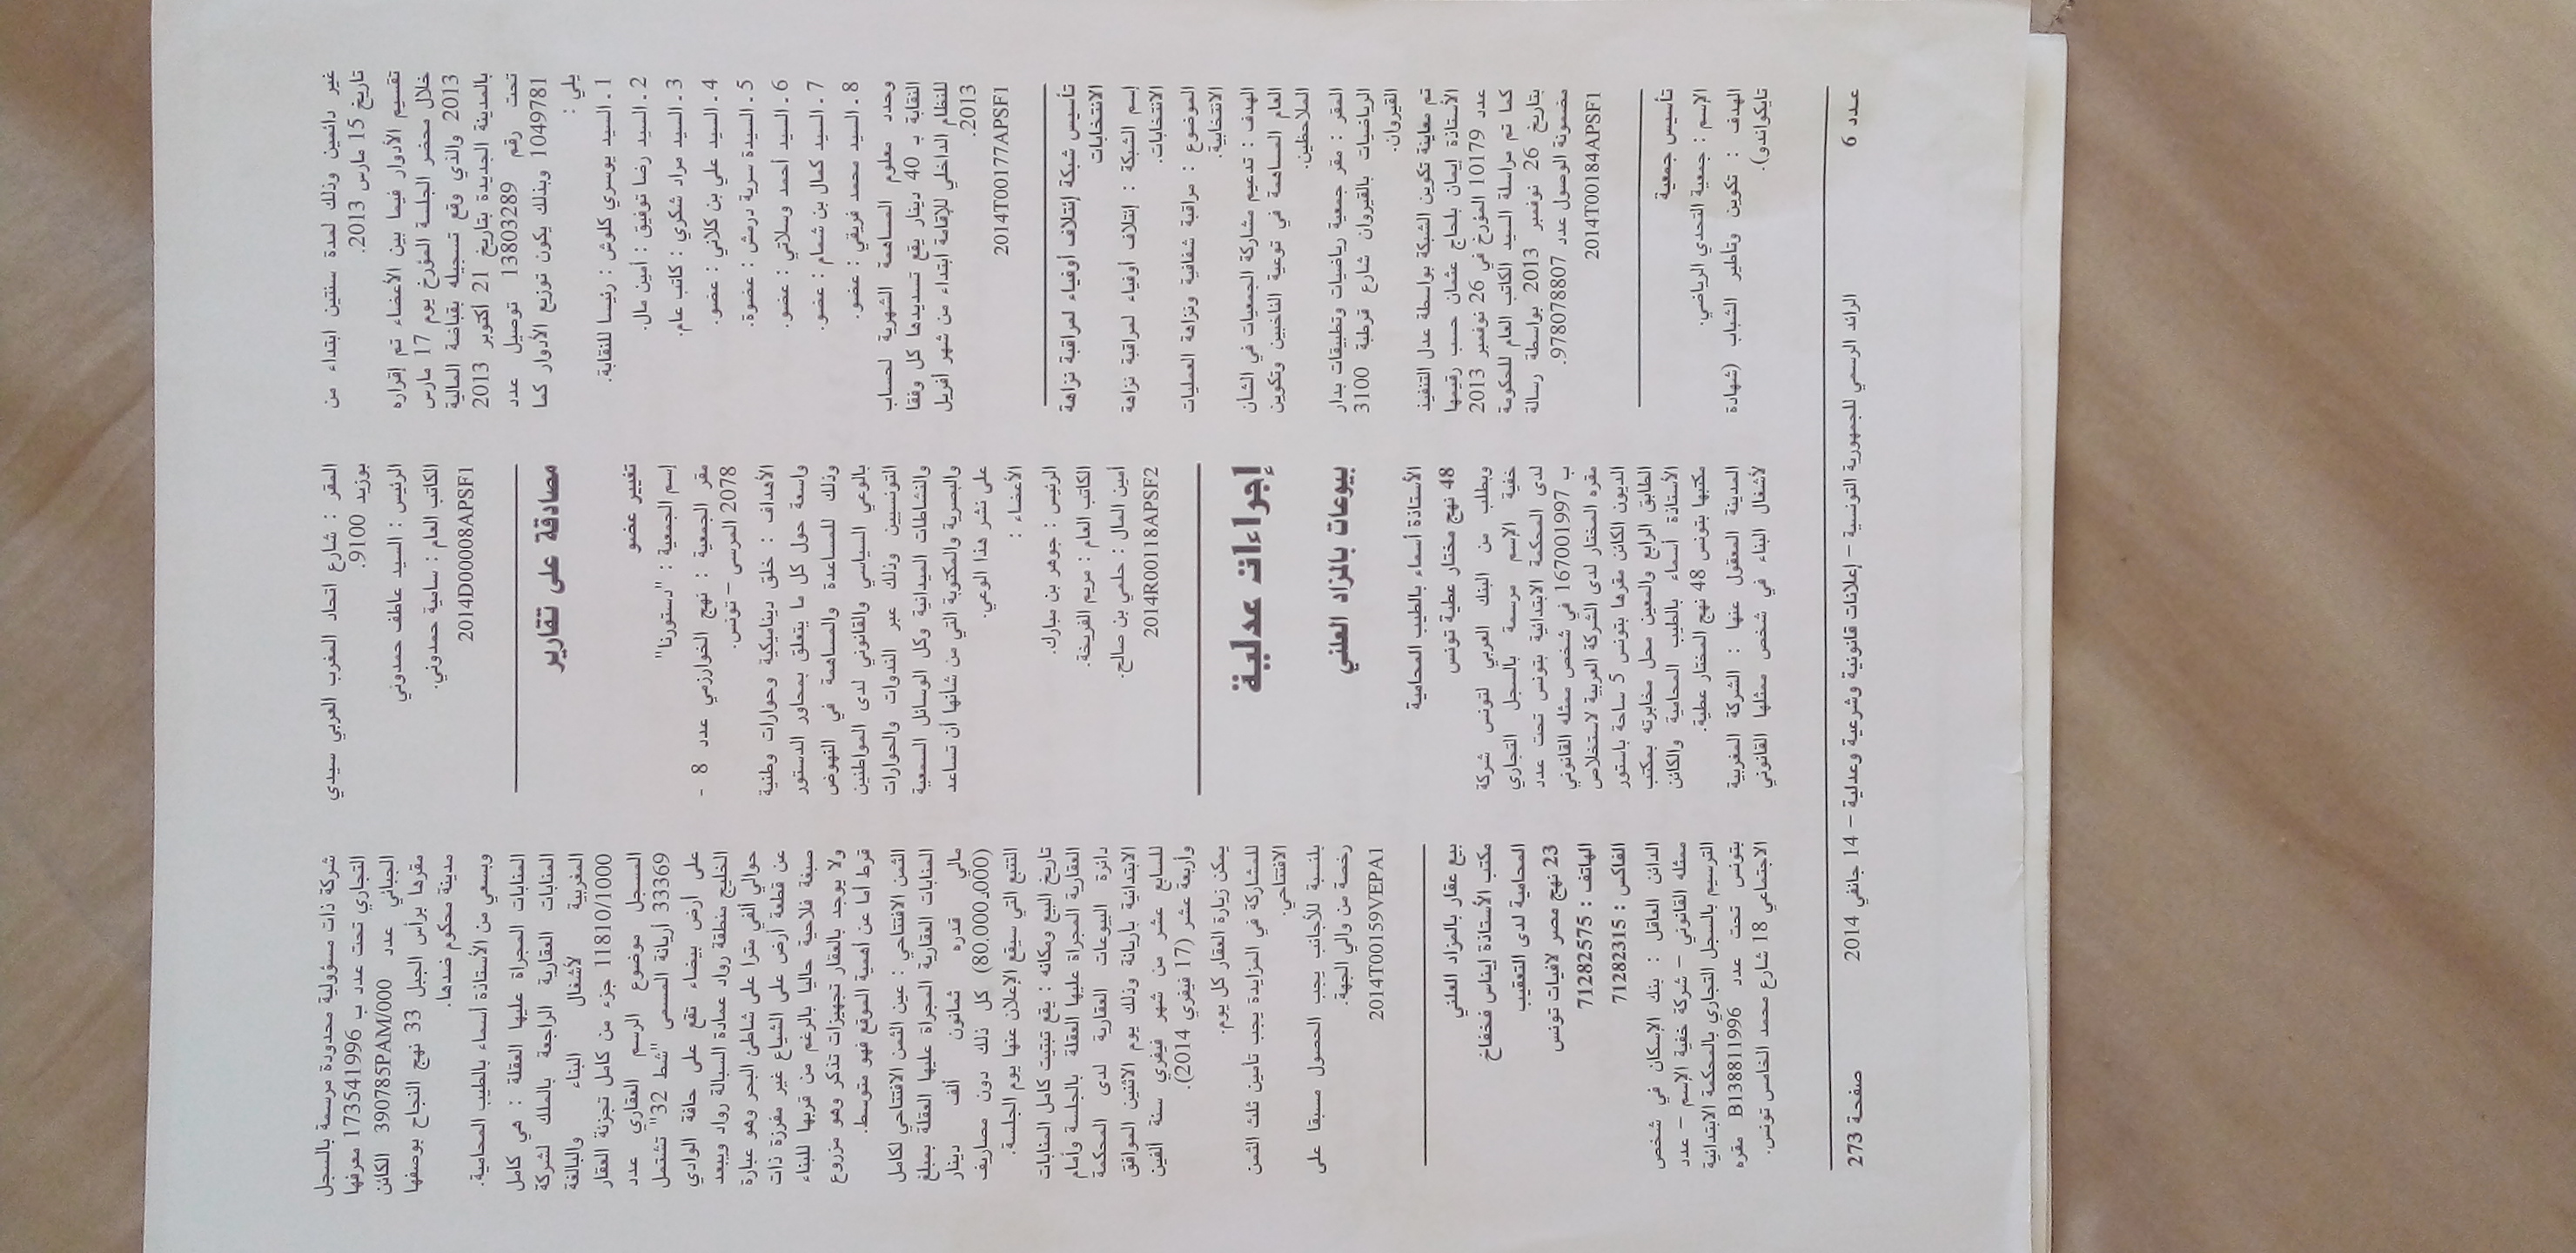 غير دائمين وذلك لمدة سنتين ابتداء من
تاريخ 15 مارس 2013.
تقسيم الأدوار فيما بين الأعضاء تم إقراره
خلال محضر الجلسة المؤرخ يوم 17 مارس
2013 والذي وقع تسجيله بقباضة المالية
بالمدينة الجديدة بتاريخ 21 أكتوبر 2013
تحت رقم 13803289 توصيل عدد
10499781 وبذلك يكون توزيع الأدوار كما
يلي :
1 ـ السيد يوسري كلوش : رئيسا للنقابة.
2 ـ السيد رضا توفيق : أمين مال.
3 ـ السيد مراد شكري : كاتب عام.
4 ـ السيد علي بن كلاني : عضو.
5 ـ السيدة سرية درمش : عضوة.
6 ـ السيد أحمد وسلاتي : عضو.
7 ـ السيد كمال بن شمام : عضو.
8 ـ السيد محمد فريقي : عضو.
وحدد معلوم المساهمة الشهرية لحساب
النقابة بـ 40 دينار يقع تسديدها كل وفقا
للنظام الداخلي للإقامة ابتداء من شهر أفريل
2013.
2014T00177APSF1
تأسيس شبكة إئتلاف أوفياء لمراقبة نزاهة
الانتخابات
إسم الشبكة : إئتلاف أوفياء لمراقبة نزاهة
الانتخابات.
الموضوع : مراقبة شفافية ونزاهة العمليات
الانتخابية.
الهدف : تدعيم مشاركة الجمعيات في الشأن
العام المساهمة في توعية الناخبين وتكوين
الملاحظين.
المقر : مقر جمعية رياضيات وتطبيقات بدار
الرياضيات بالقيروان شارع قرطبة 3100
القيروان.
تم معاينة تكوين الشبكة بواسطة عدل التنفيذ
الأستاذة إيمان بلحاج عثمان حسب رقيمها
عدد 10179 المؤرخ في 26 نوفمبر 2013
كما تم مراسلة السيد الكاتب العام للحكومة
بتاريخ 26 نوفمبر 2013 بواسطة رسالة
مضمونة الوصول عدد 978078807.
2014T00184APSF1
تأسيس جمعية
الإسم : جمعية التحدي الرياضي.
الهدف : تكوين وتأطير الشباب (شهادة
تايكواندو).
المقر : شارع اتحاد المغرب العربي سيدي
بوزيد 9100.
الرئيس : السيد عاطف حمدوني
الكاتب العام : سامية حمدوني.
2014D00008APSF1
مصادقة على تقارير
تغيير عضو
إسم الجمعية : "دستورنا"
مقر الجمعية : نهج الخوارزمي عدد 8 -
2078 المرسى – تونس.
الأهداف : خلق ديناميكية وحوارات وطنية
واسعة حول كل ما يتعلق بمحاور الدستور
وذلك للمساعدة والمساهمة في النهوض
بالوعي السياسي والقانوني لدى المواطنين
التونسيين وذلك عبر الندوات والحوارات
والنشاطات الميدانية وكل الوسائل السمعية
والبصرية والمكتوبة التي من شأنها أن تساعد
على نشر هذا الوعي.
الأعضاء :
الرئيس : جوهر بن مبارك.
الكاتب العام : مريم الفريخة.
أمين المال : حلمي بن صالح.
2014R00118APSF2
إجراءات عدلية
بيوعات بالمزاد العلني
الأستاذة أسماء بالطيب المحامية
48 نهج مختار عطية تونس
وبطلب من البنك العربي لتونس شركة
خفية الإسم مرسمة بالسجل التجاري
لدى المحكمة الابتدائية بتونس تحت عدد
ب 167001997 في شخص ممثله القانوني
مقره المختار لدى الشركة العربية لاستخلاص
الديون الكائن مقرها بتونس 5 ساحة باستور
الطابق الرابع والمعين محل مخابرته بمكتب
الأستاذة أسماء بالطيب المحامية والكائن
مكتبها بتونس 48 نهج المختار عطية.
المدينة المعقول عنها : الشركة المغربية
لأشغال البناء في شخص ممثلها القانوني
شركة ذات مسؤولية محدودة مرسمة بالسجل
التجاري تحت عدد ب 173541996 معرفها
الجبائي عدد 390785PAM/000 الكائن
مقرها برأس الجبل 33 نهج النجاح بوصفها
مدينة محكوم ضدها.
وبسعي من الأستاذة أسماء بالطيب المحامية.
المنابات المجراة عليها العقلة : هي كامل
المنابات العقارية الراجعة بالملك لشركة
المغربية لأشغال البناء والبالغة
11810/1000 جزء من كامل تجزئة العقار
المسجل موضوع الرسم العقاري عدد
33369 أريانة المسمى "شط 32" تشتمل
على أرض بيضاء تقع على حافة الوادي
الخليج منطقة رواد عمادة السبالة رواد ويبعد
حوالي ألفي مترا على شاطئ البحر وهو عبارة
عن قطعة أرض على الشياع غير مفرزة ذات
صبغة فلاحية حاليا بالرغم من قربها للبناء
ولا يوجد بالعقار تجهيزات تذكر وهو مزروع
قرط أما عن أهمية الموقع فهو متوسط.
الثمن الافتتاحي : عين الثمن الافتتاحي لكامل
المنابات العقارية المجراة عليها العقلة بمبلغ
مالي قدره ثمانون ألف دينار
(80.000٫000) كل ذلك دون مصاريف
التتبع التي سيقع الإعلان عنها يوم الجلسة.
تاريخ البيع ومكانه : يقع تبتيت كامل المنابات
العقارية المجراة عليها العقلة بالجلسة وأمام
دائرة البيوعات العقارية لدى المحكمة
الابتدائية بأريانة وذلك يوم الاثنين الموافق
للسابع عشر من شهر فيفري سنة ألفين
وأربعة عشر (17 فيفري 2014).
يمكن زيارة العقار كل يوم.
للمشاركة في المزايدة يجب تأمين ثلث الثمن
الافتتاحي.
بلنسبة للأجانب يجب الحصول مسبقا على
رخصة من والي الجهة.
2014T00159VEPA1
بيع عقار بالمزاد العلني
مكتب الأستاذة إيناس فخفاخ
المحامية لدى التعقيب
23 نهج مصر لافيات تونس
الهاتف : 71282575
الفاكس : 71282315
الدائن العاقل : بنك الإسكان في شخص
ممثله القانوني – شركة خفية الإسم – عدد
الترسيم بالسجل التجاري بالمحكمة الابتدائية
بتونس تحت عدد B138811996 مقره
الاجتماعي 18 شارع محمد الخامس تونس.
عـدد 6
الرائد الرسمي للجمهورية التونسية – إعلانات قانونية وشرعية وعدلية – 14 جانفي 2014
صفحة 273